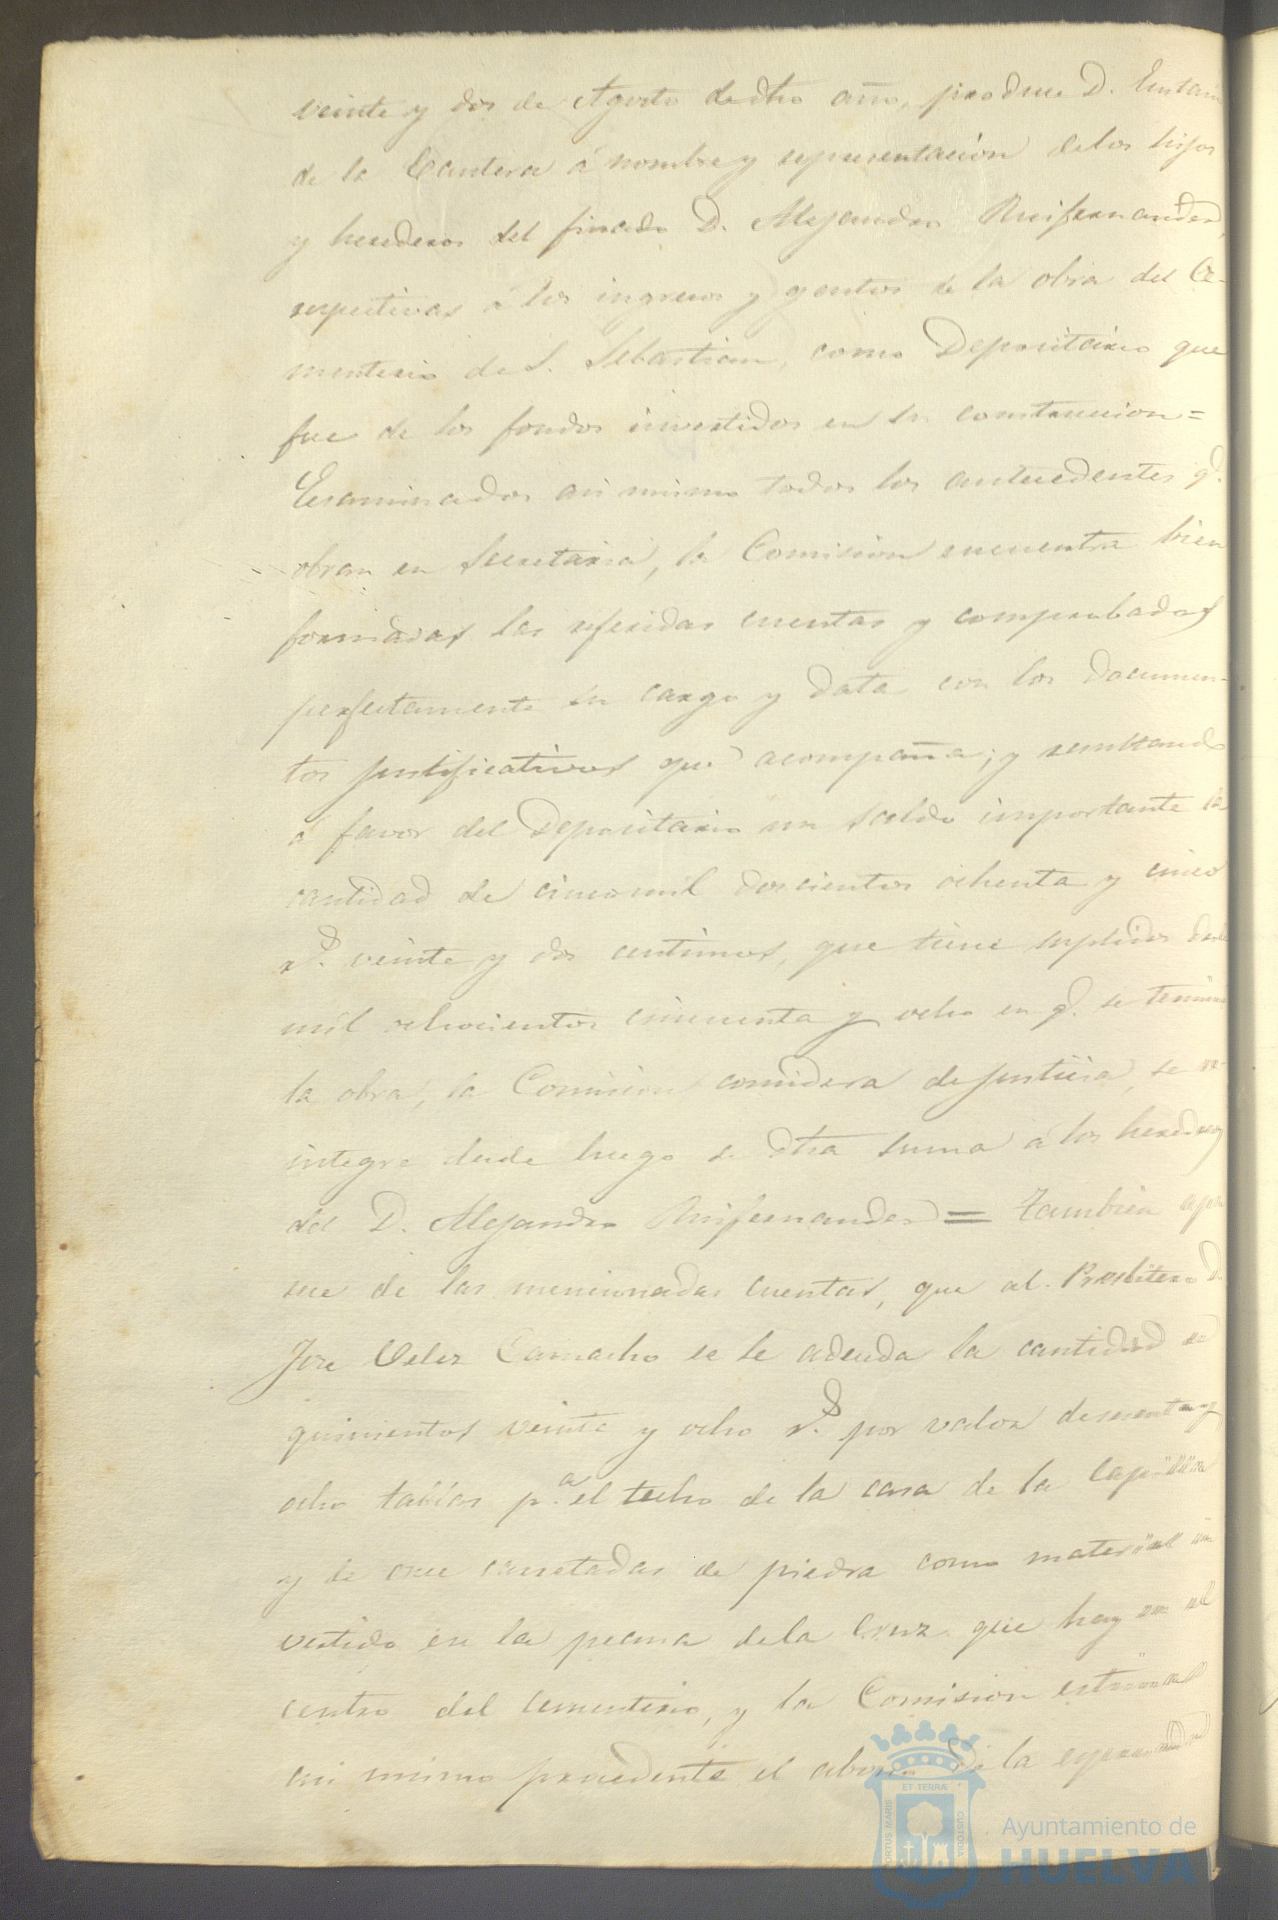 veinte y dos de Agosto de dho año, produce D. Eustaq
de la Cantera á nombre y representacion delos hijos
y herederos del finado D. Alejandro Ruifernandez,
respectivas a los ingresos y gastos de la obra del Ce-
menterio de S. Sebastian, como Depositario que
fue de los fondos invertidos en su construccion=
Ecsaminados asi mismo todos los antecedentes q.
obran en Secretaria, la Comision encuentra bien
formadas las referidas cuentas y comprobadas
perfectamente su cargo y data con los documen-
tos justificativos que acompaña; y resultando
á favor del Depositario un saldo importante la
cantidad de cinco mil doscientos ochenta y cinco
r.s veinte y dos centimos, que tiene suplidos desde
mil ochocientos cincuenta y ocho en q. se termino
la obra, la Comision considera de justicia, se re-
integre desde luego de dha suma á los herederos
del D. Alejandro Ruifernandez = Tambien apa
rece de las mencionadas cuentas, que al Presbitero D.
Jose Velez Camacho se le adeuda la cantidad de
quinientos veinte y ocho r.s por valor de sesenta y
ocho tablas p.a el techo de la casa de la Capilla
y de once carretadas de piedra como material in
vertido en la peana dela Cruz que hay en el
centro del cementerio, y la Comision estima
asi mismo procedente el abono de la espresada
Ayuntamiento de
HUELVA
PORTUS MARIS
ET TERRÆ
CUSTODIA